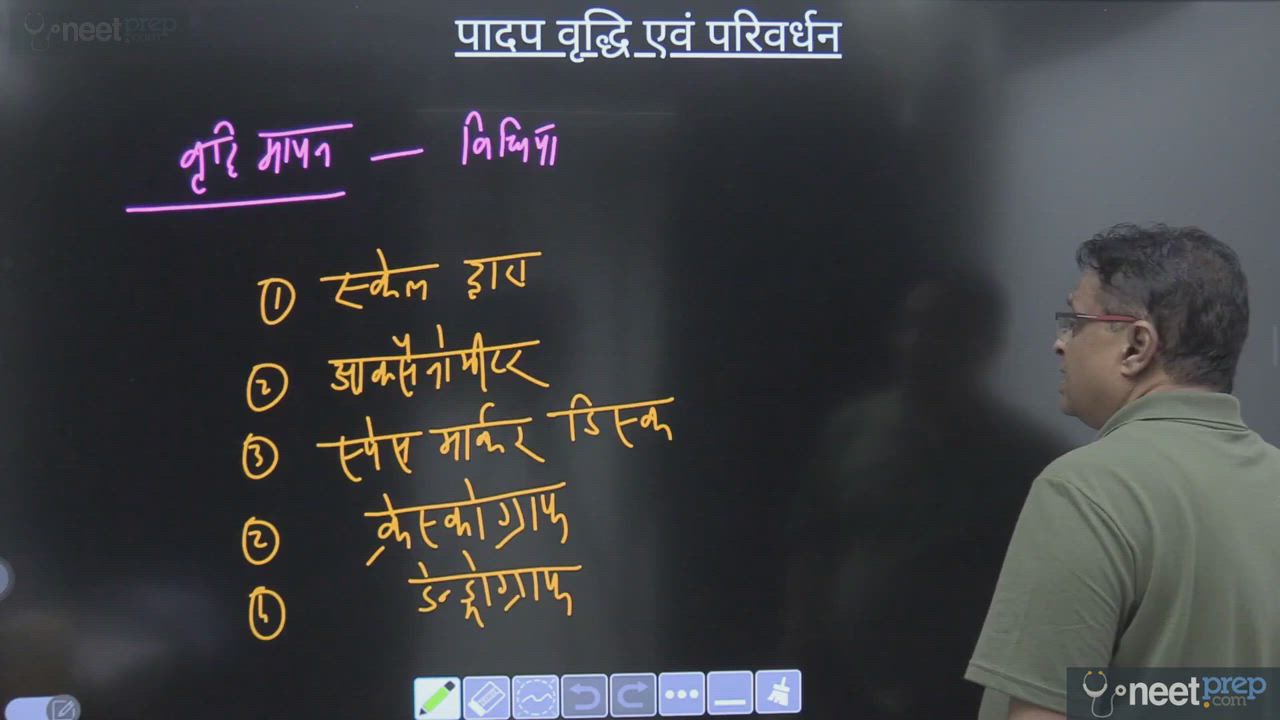 neetprep.com
पादप वृद्धि एवं परिवर्धन
वृद्धि मापन — विधियाँ
① स्केल द्वारा
② आक्सैनोमीटर
③ स्पेस मार्कर डिस्क
② क्रेस्कोग्राफ
⑤ डेन्ड्रोग्राफ
neetprep.com